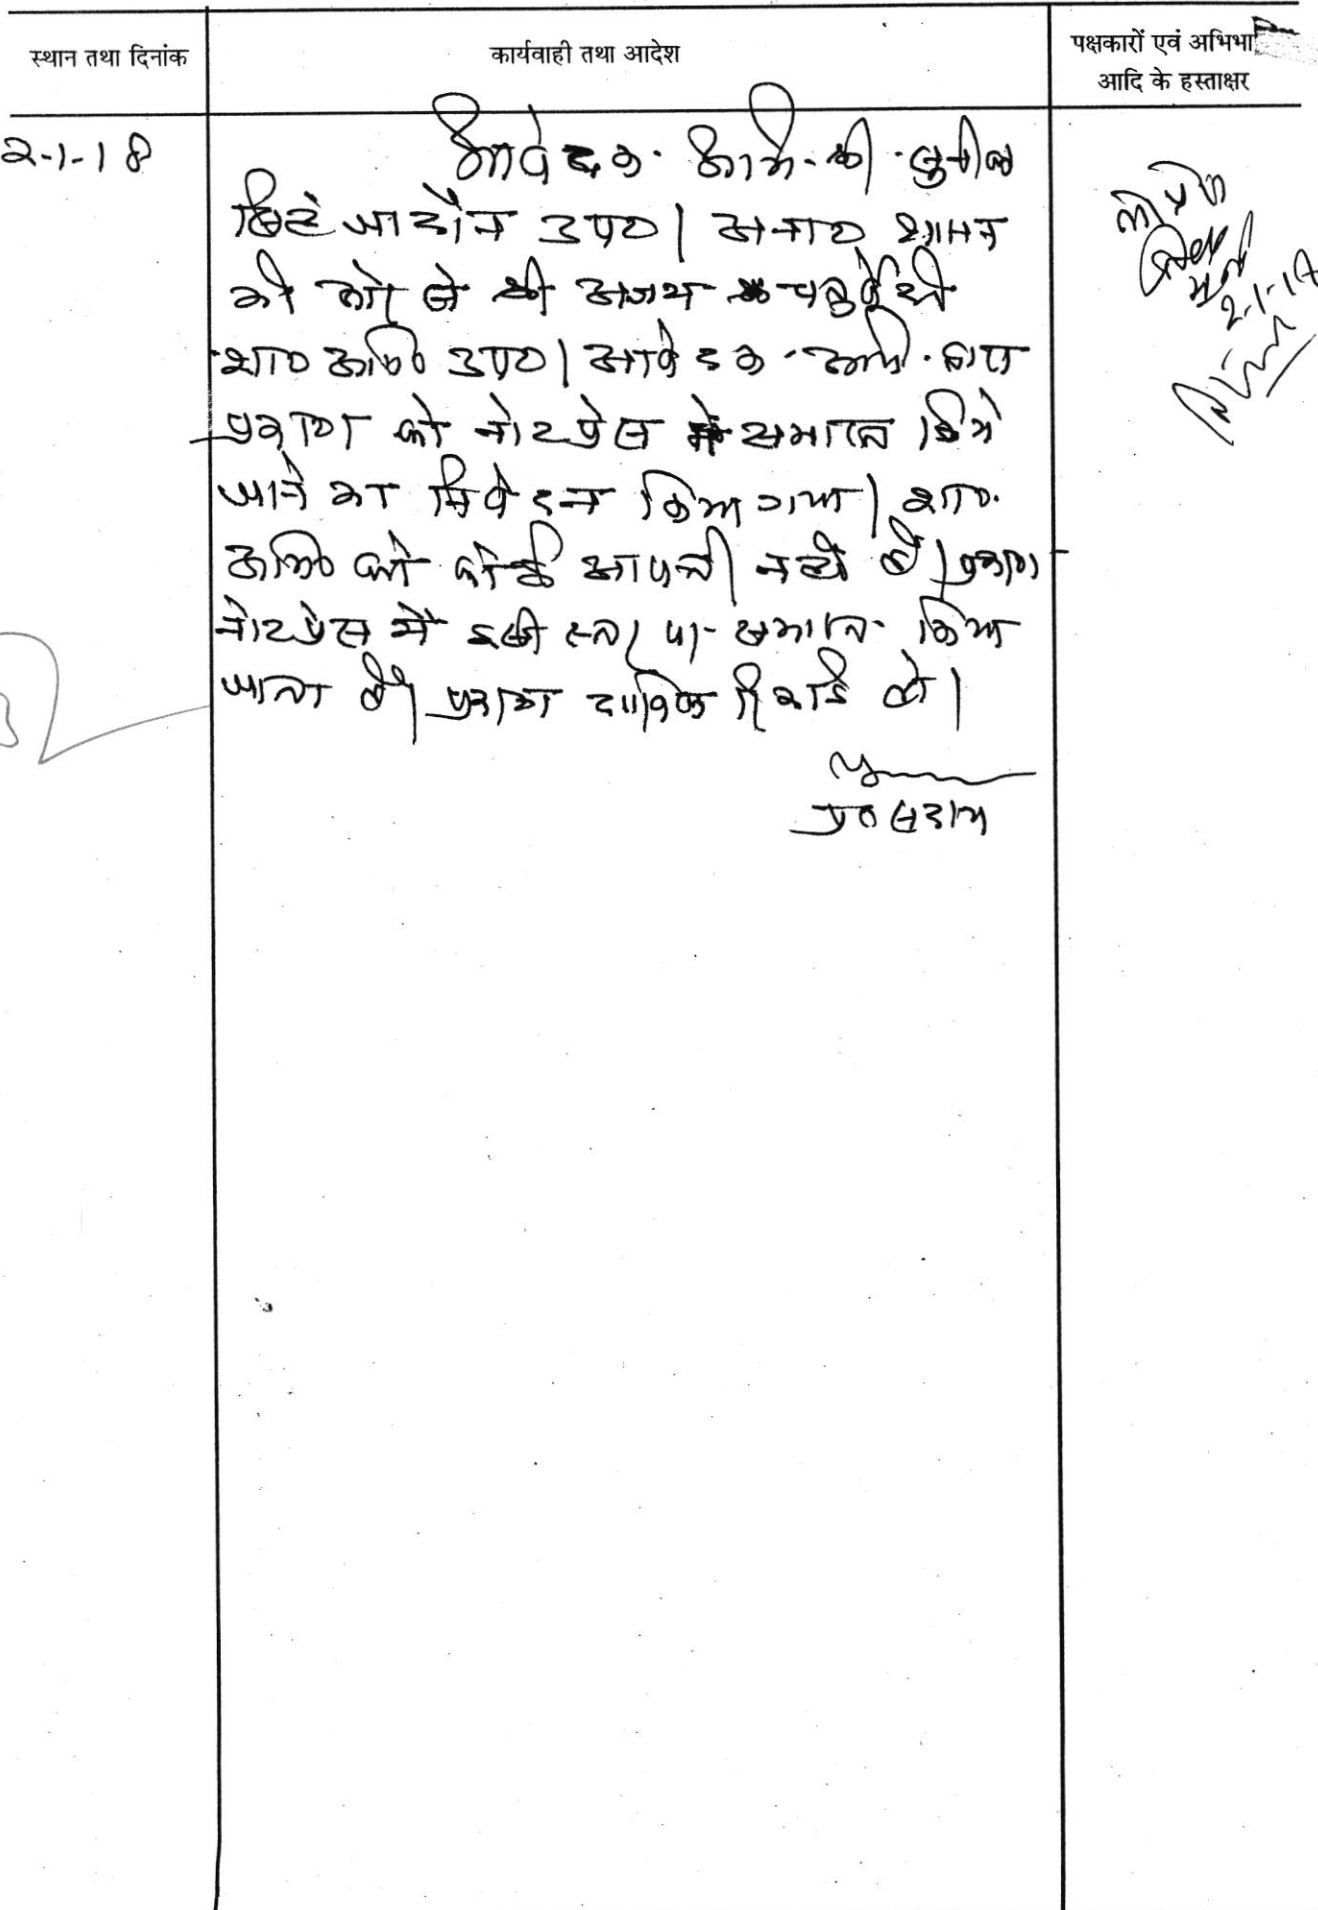 स्थान तथा दिनांक
कार्यवाही तथा आदेश
पक्षकारों एवं अभिभा
आदि के हस्ताक्षर
2-1-18
आवेदक अभि. श्री सुनील
सिंह जादौन उप० | अना० शासन
की ओर से श्री अजय चतुर्वेदी
शा० अभि० उप० | आवेदक अभि. द्वारा
प्रकरण को नोटप्रेस में समाप्त किये
जाने का निवेदन किया गया | शा०
अभि० को कोई आपत्ती नहीं है | प्रकरण
नोटप्रेस में इसी स्तर पर समाप्त किया
जाता है | प्रकरण दाखिल रिकार्ड हो |
प्र० सदस्य
नो प्रेस
2-1-18